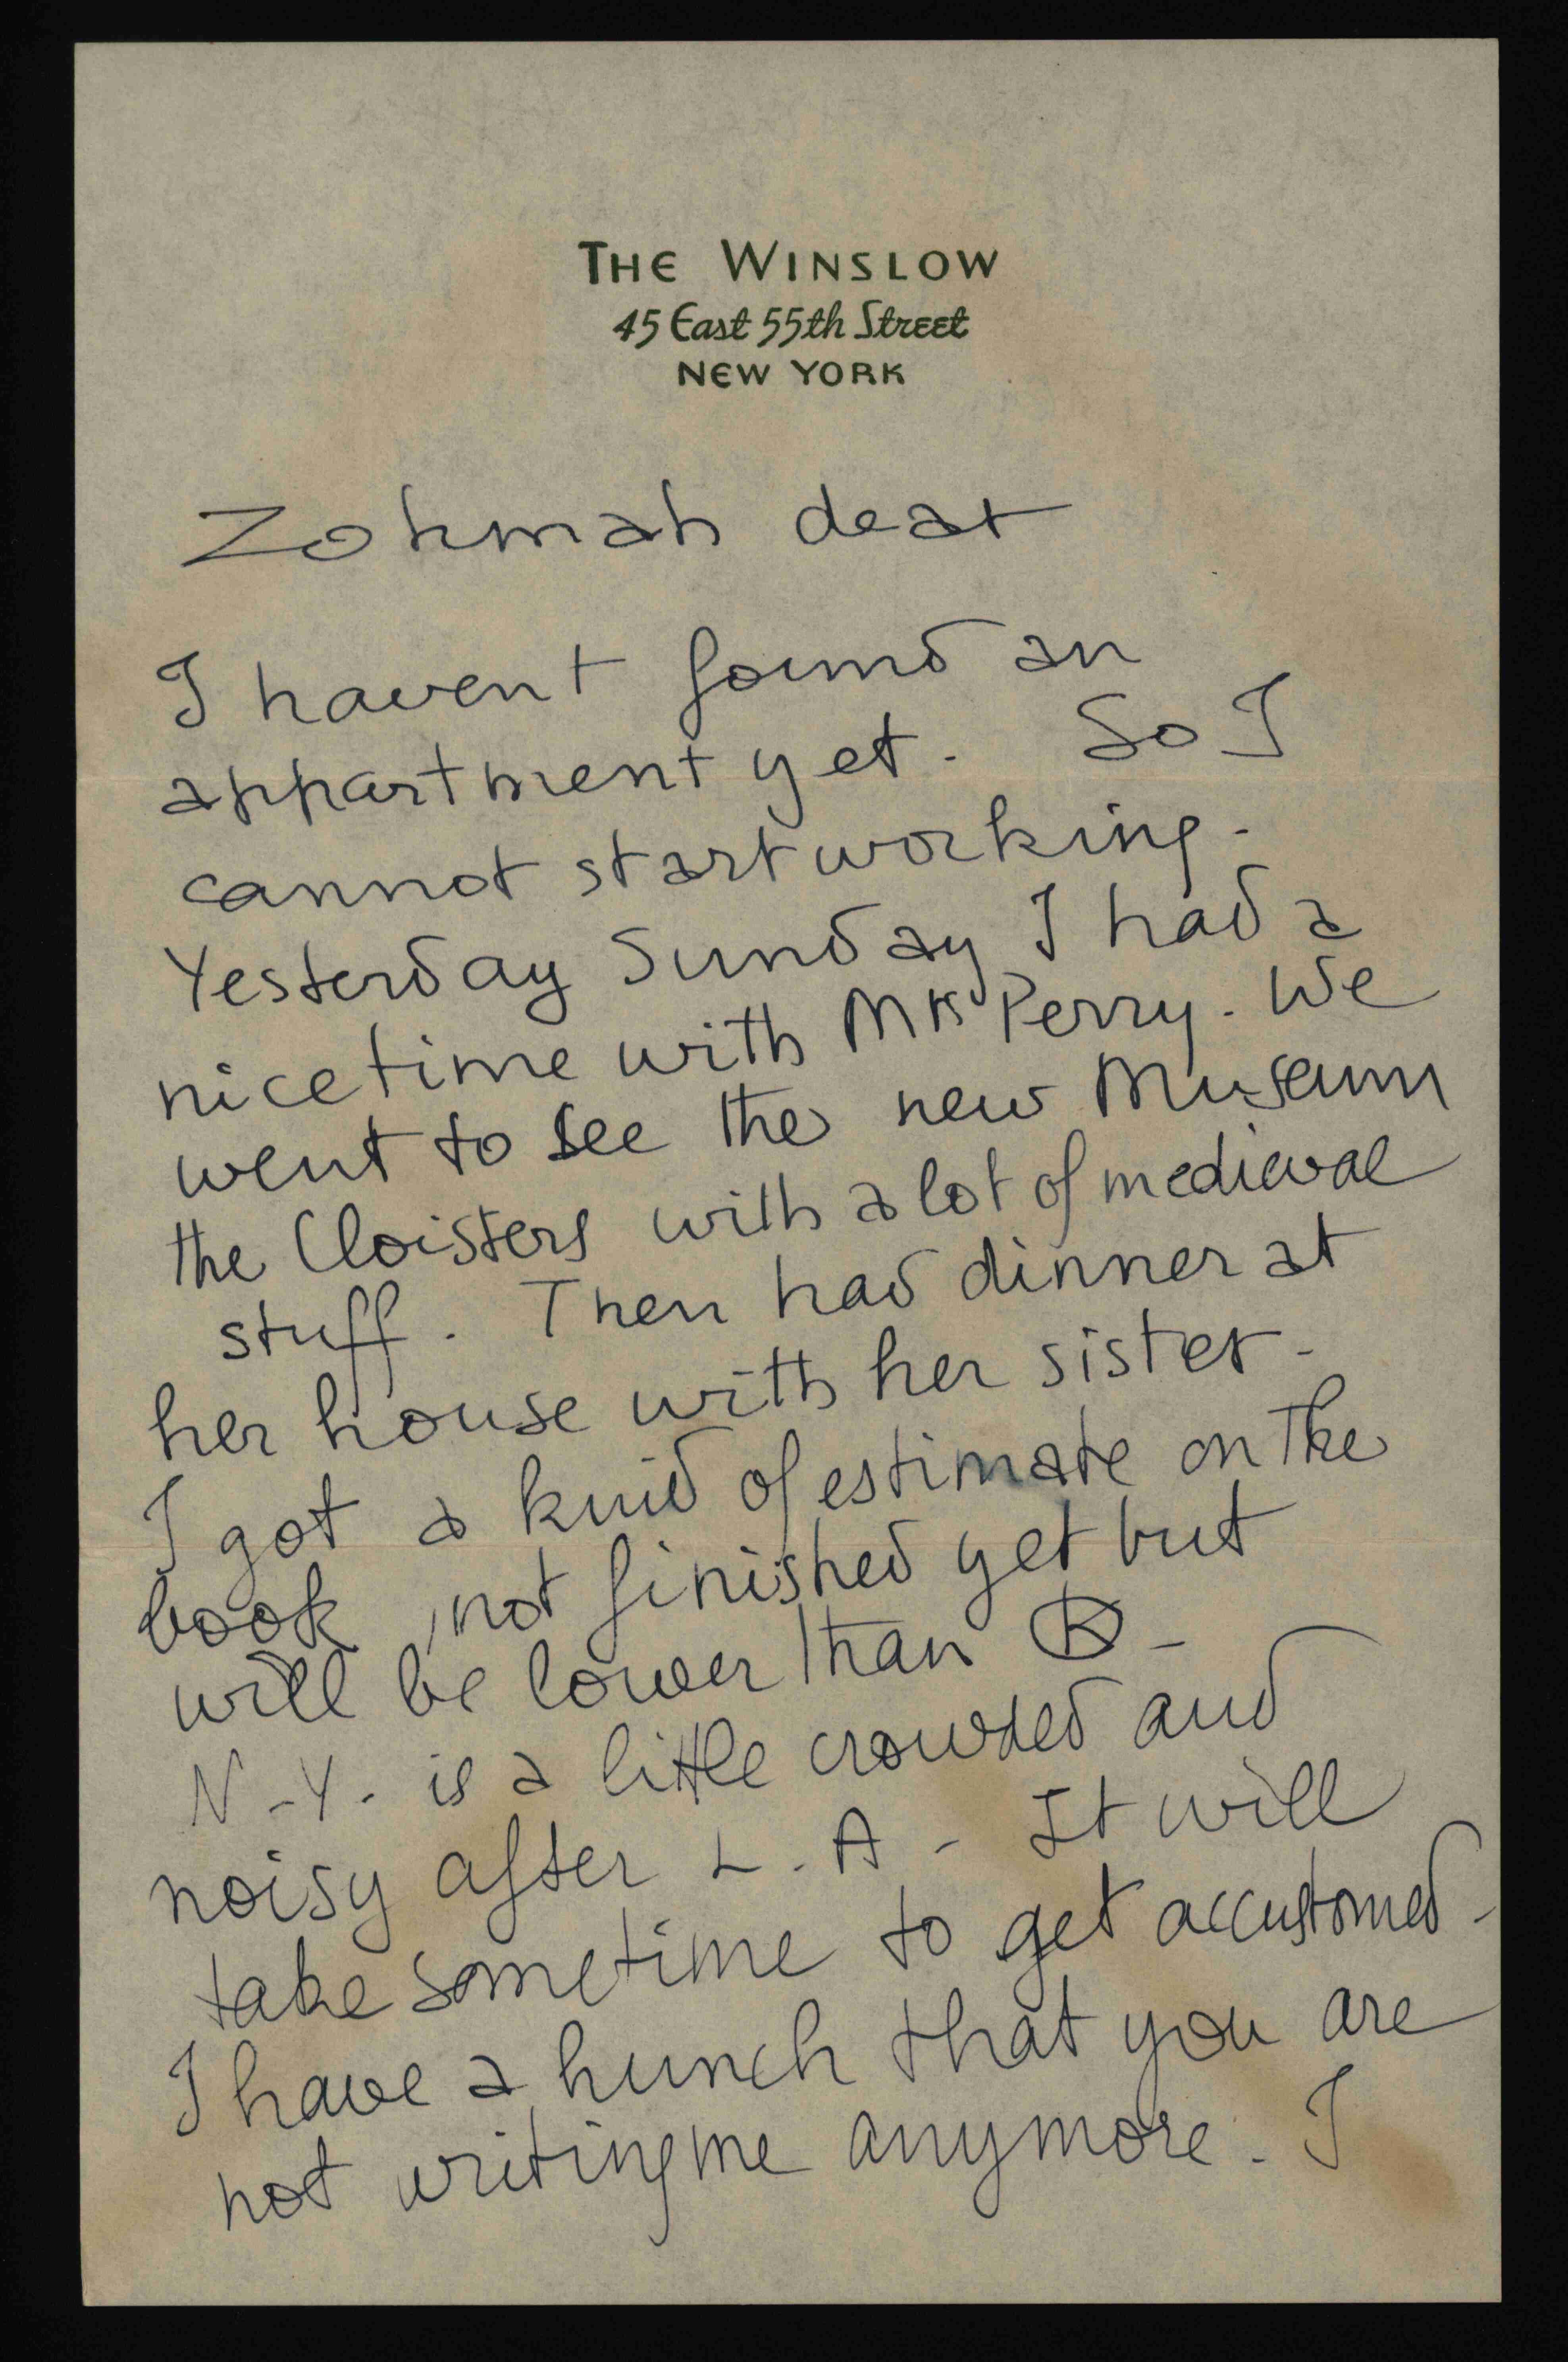 THE WINSLOW
45 East 55th Street
NEW YORK
Zohmah dear
I havent found an
appartment yet. So I
cannot start working.
Yesterday Sunday I had a
nice time with Mrs Perry. We
went to see the new Museum
the Cloisters with a lot of medieval
stuff. Then had dinner at
her house with her sister.
I got a kind of estimate on the
book, not finished yet but
will be lower than K -
N.Y. is a little crowded and
noisy after L.A. It will
take sometime to get accustomed.
I have a hunch that you are
not writing me anymore. I